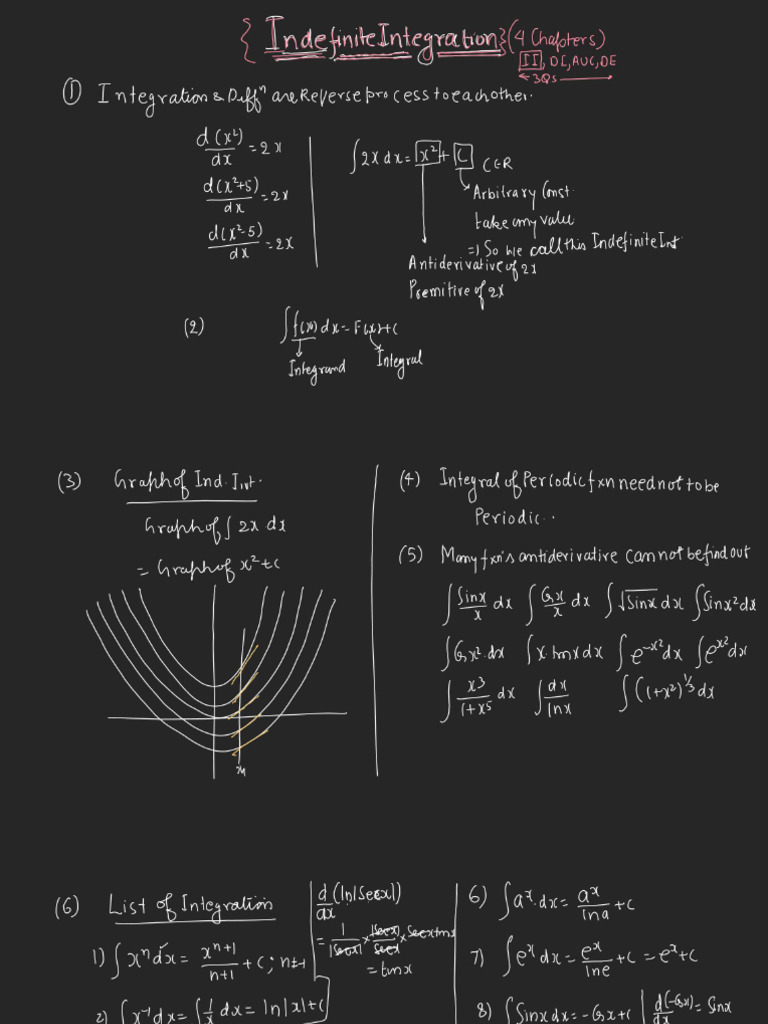 { Indefinite Integration } (4 Chapters)
II, DI, AUC, DE
3Qs
① Integration & Diffⁿ are Reverse process to each other.
d(x²)/dx = 2x
d(x²+5)/dx = 2x
d(x²-5)/dx = 2x
∫2x dx = x² + C C∈R
Arbitrary Const
take any value
=) So we call this Indefinite Int
Antiderivative of 2x
Premitive of 2x
(2) ∫f(x) dx = F(x)+C
Integrand Integral
(3) Graph of Ind. Int.
Graph of ∫2x dx
= Graph of x²+c
x₁
(4) Integral of Periodic fxn need not to be
Periodic..
(5) Many fxn's antiderivative cannot be find out
∫Sinx/x dx ∫Cosx/x dx ∫√Sinx dx ∫Sinx² dx
∫Cosx² dx ∫x·tanx dx ∫e^-x² dx ∫e^x² dx
∫x³/1+x⁵ dx ∫dx/lnx ∫(1+x²)^1/3 dx
(6) List of Integration
1) ∫xⁿ dx = xⁿ⁺¹/n+1 + C ; n≠-1
2) ∫x⁻¹dx = ∫1/x dx = ln|x|+C
d/dx (ln|Secx|)
= 1/|Secx| × |Secx|/Secx × Secx tanx
= tanx
6) ∫aˣ·dx = aˣ/lna + C
7) ∫eˣ dx = eˣ/lne + C = eˣ+C
8) ∫Sinx dx = -Cosx+C d(-Cosx)/dx = Sinx